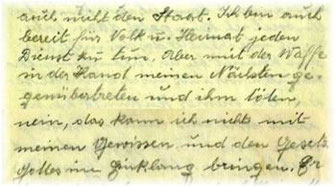 auch nicht den Staat. Ich bin auch
bereit für Volk u. Heimat jeden
Dienst zu tun. Aber mit der Waffe
in der Hand meinen Nächsten ge-
genübertreten und ihm töden,
nein, das kann ich nicht mit
meinen Gewissen und den Gesetz
Gottes im Einklang bringen. Er